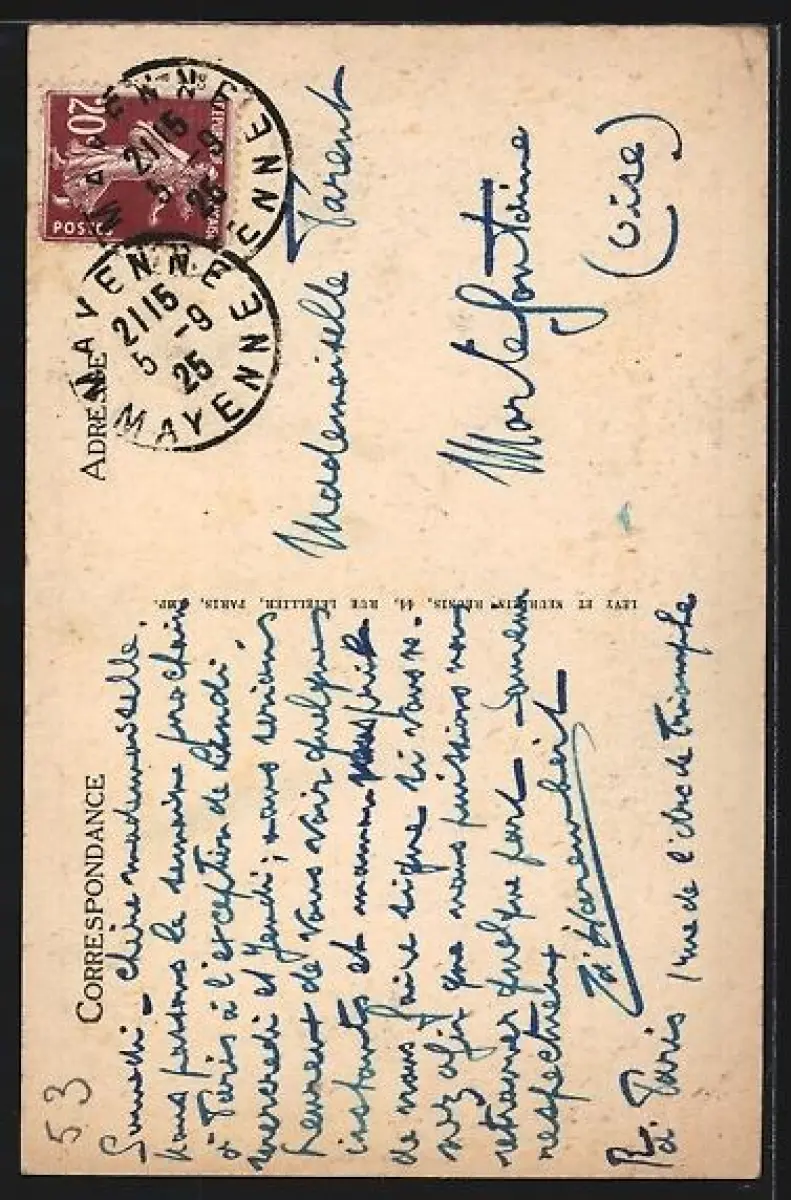 53
CORRESPONDANCE
Samedi - Chère mademoiselle.
Nous passons la semaine prochaine
à Paris à l'exception de Lundi
mercredi et Jeudi, nous serions
heureux de vous voir quelques
instants et maman vous prie
de nous faire signe si vous ve-
nez afin que nous puissions nous
retrouver quelque part
respectueux
Paris 1 rue de l'Arc de Triomphe
LEVY ET NEURDEIN RÉUNIS, 44, RUE LETELLIER, PARIS, IMP.
ADRESSE
20
POSTES
MAYENNE
21 15
5 -9
25
MAYENNE
MAYENNE
21 15
5 -9
25
MAYENNE
Mademoiselle Parent
Mortefontaine
(Oise)